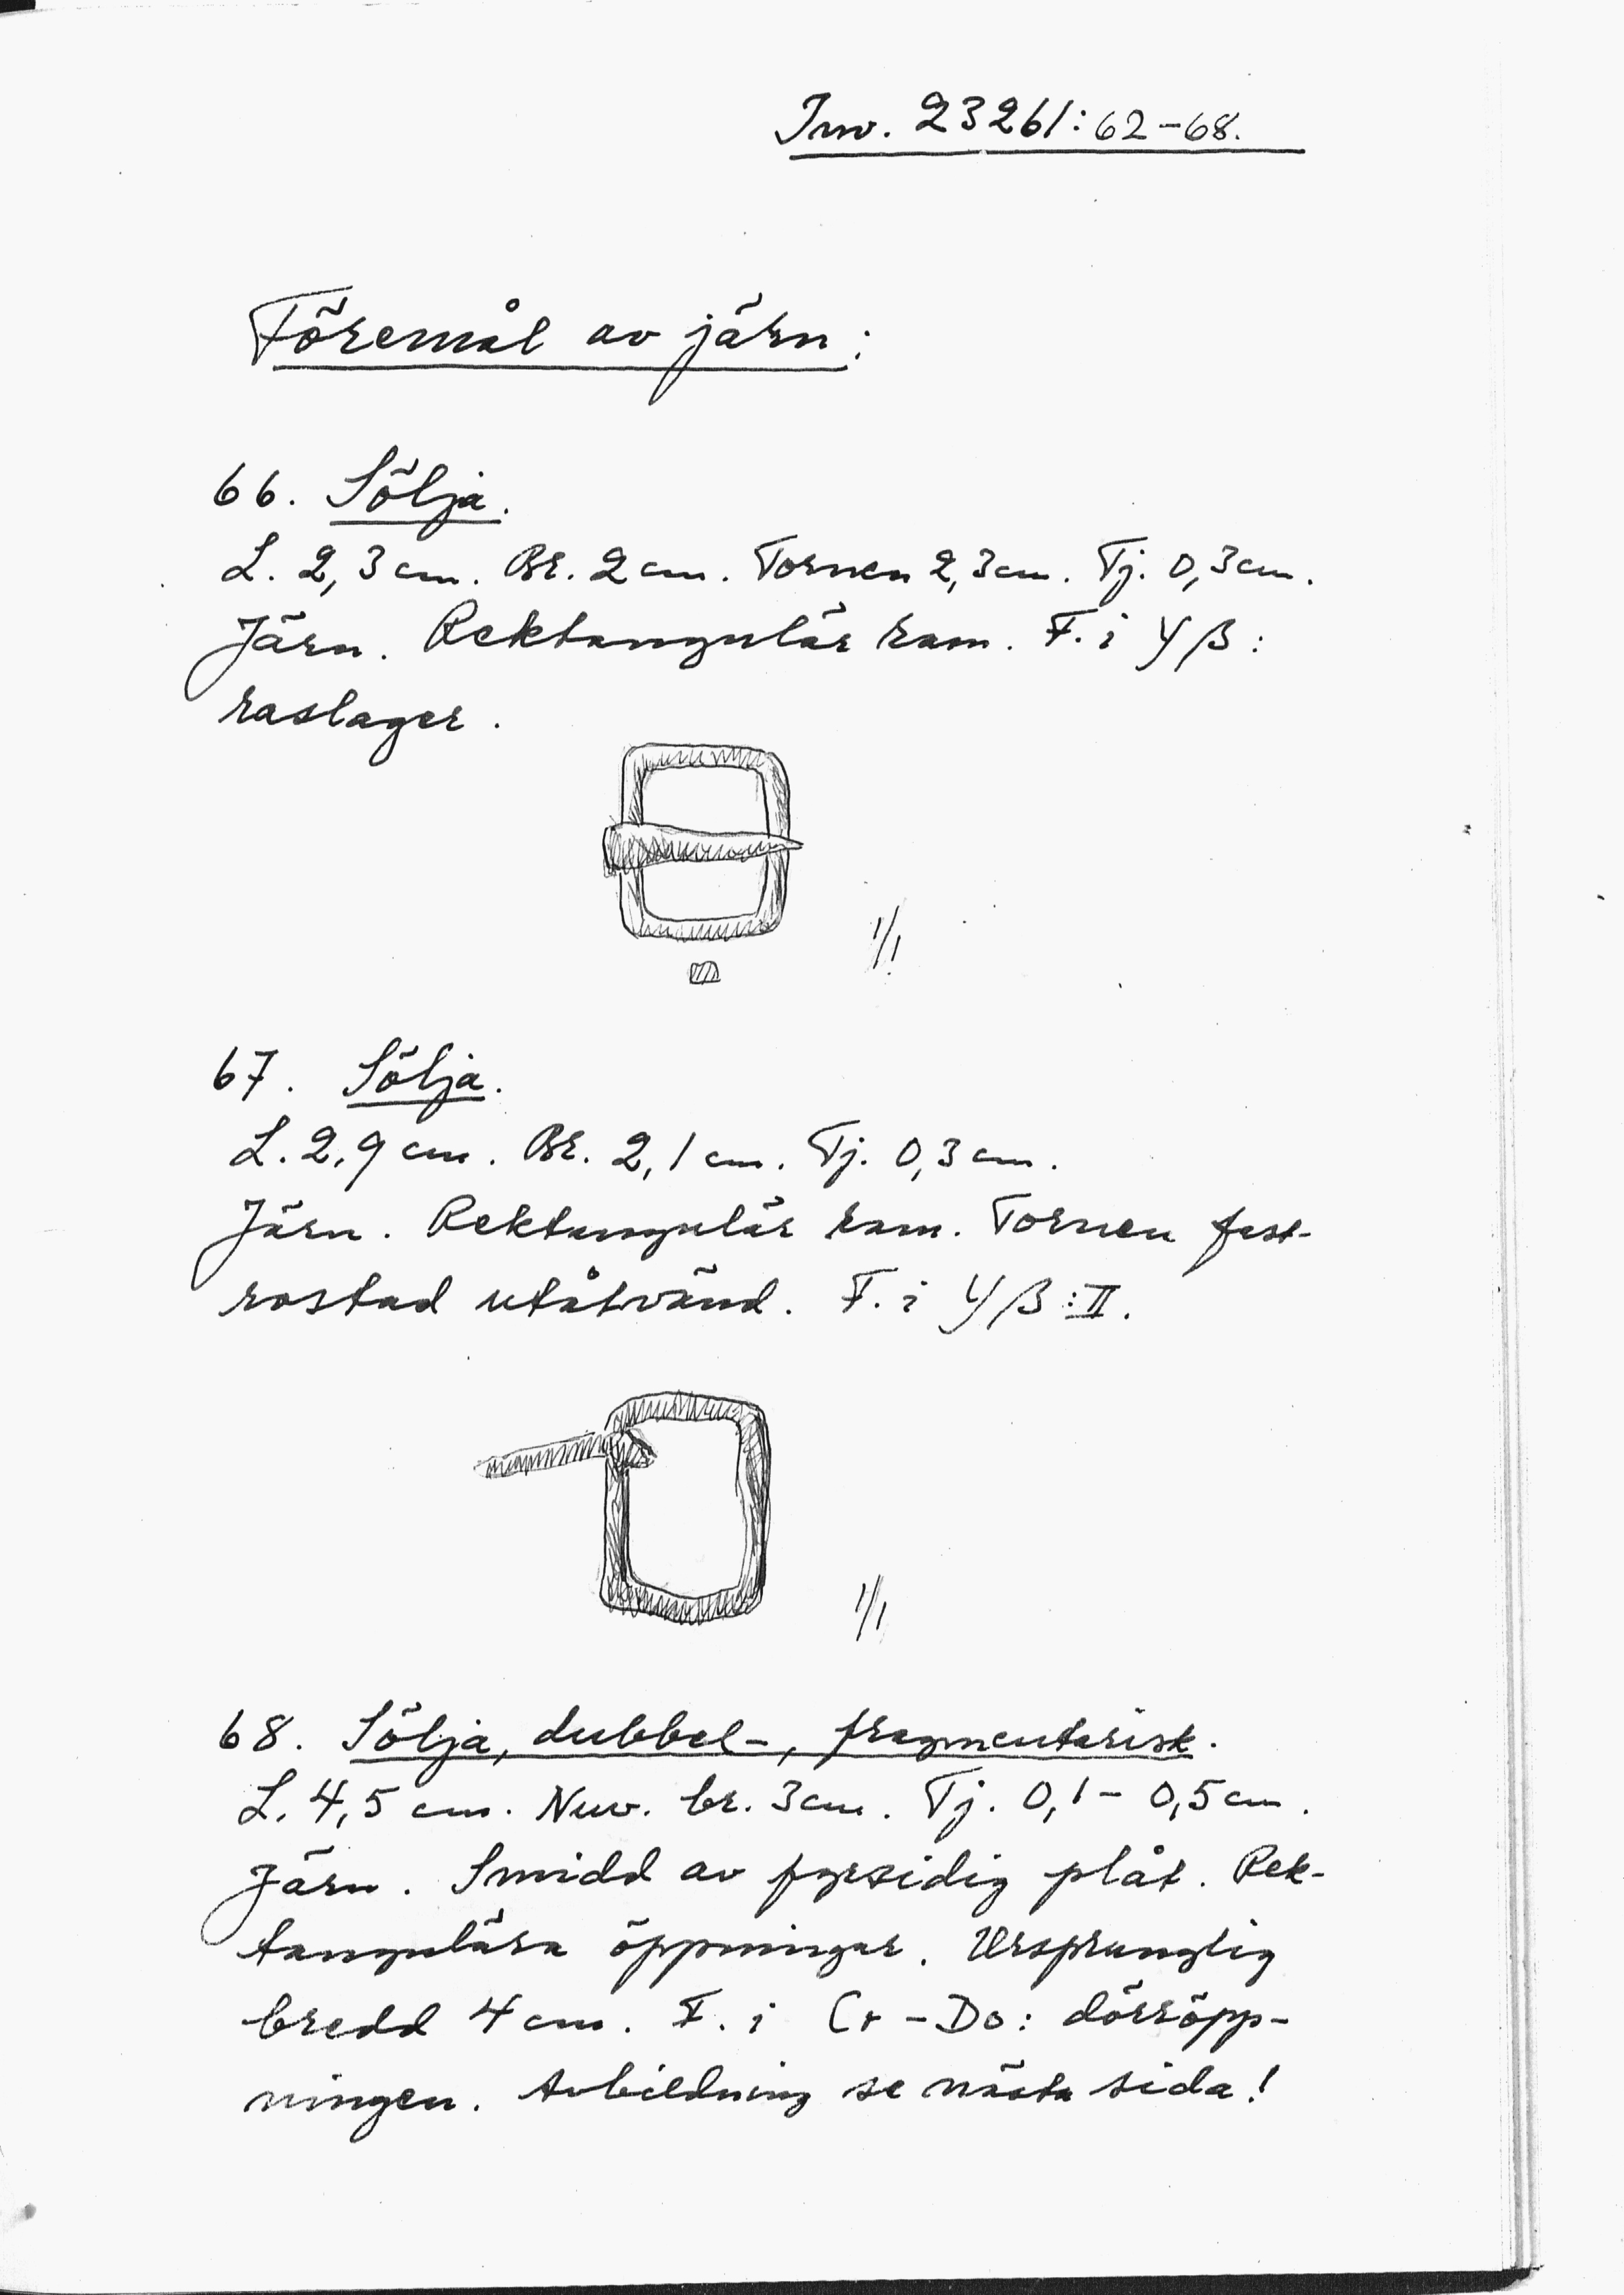 Inv. 23261:62-68.
Föremål av järn:
66. Sölja.
L. 2,3 cm. Br. 2 cm. Tornen 2,3 cm. Tj. 0,3 cm.
Järn. Rektangulär ram. F. i Yβ:
raslager.
1/1
67. Sölja.
L. 2,9 cm. Br. 2,1 cm. Tj. 0,3 cm.
Järn. Rektangulär ram. Tornen fast-
rostad utåtvänd. F. i Yβ:II.
1/1
68. Sölja, dubbel-, fragmentarisk.
L. 4,5 cm. Nuv. br. 3 cm. Tj. 0,1 - 0,5 cm.
Järn. Smidd av fyrsidig plåt. Rek-
tangulära öppningar. Ursprunglig
bredd 4 cm. F. i : dörröpp-
ningen. Avbildning se nästa sida!